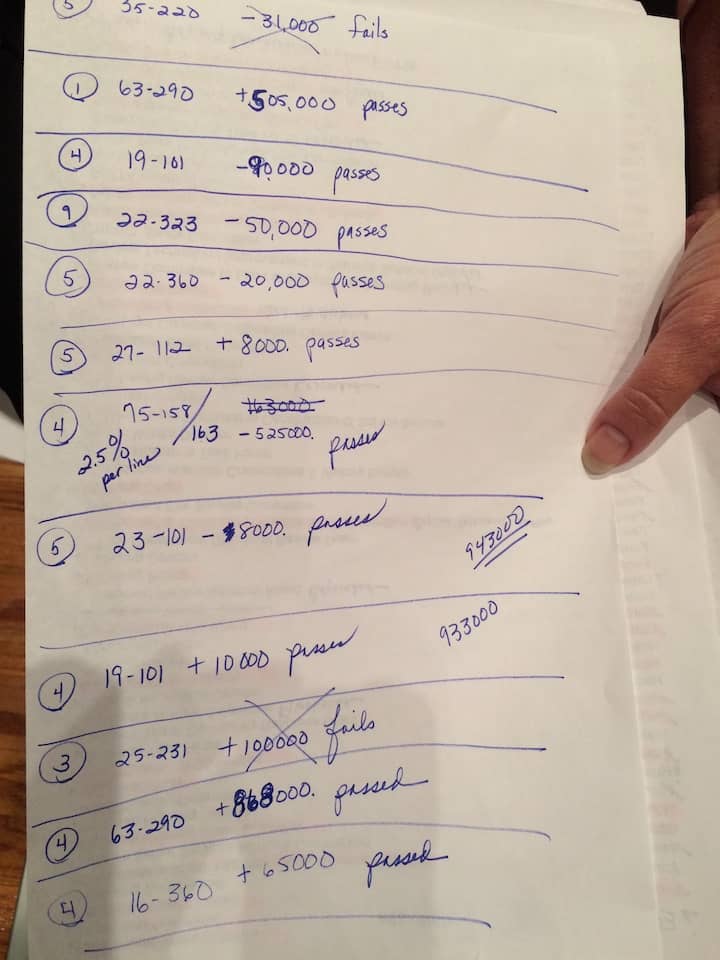 ⑤ 35-220 -31,000 fails
① 63-290 +505,000 passes
④ 19-101 -90,000 passes
⑨ 22-323 -50,000 passes
⑤ 22-360 -20,000 passes
⑤ 27-112 +8000. passes
④ 75-158/163 163000
-525000. passed
2.5%
per line
⑤ 23-101 -8000. passes
943000
933000
④ 19-101 +10000 passes
③ 25-231 +100000 fails
④ 63-290 +868000. passed
④ 16-360 +65000 passed